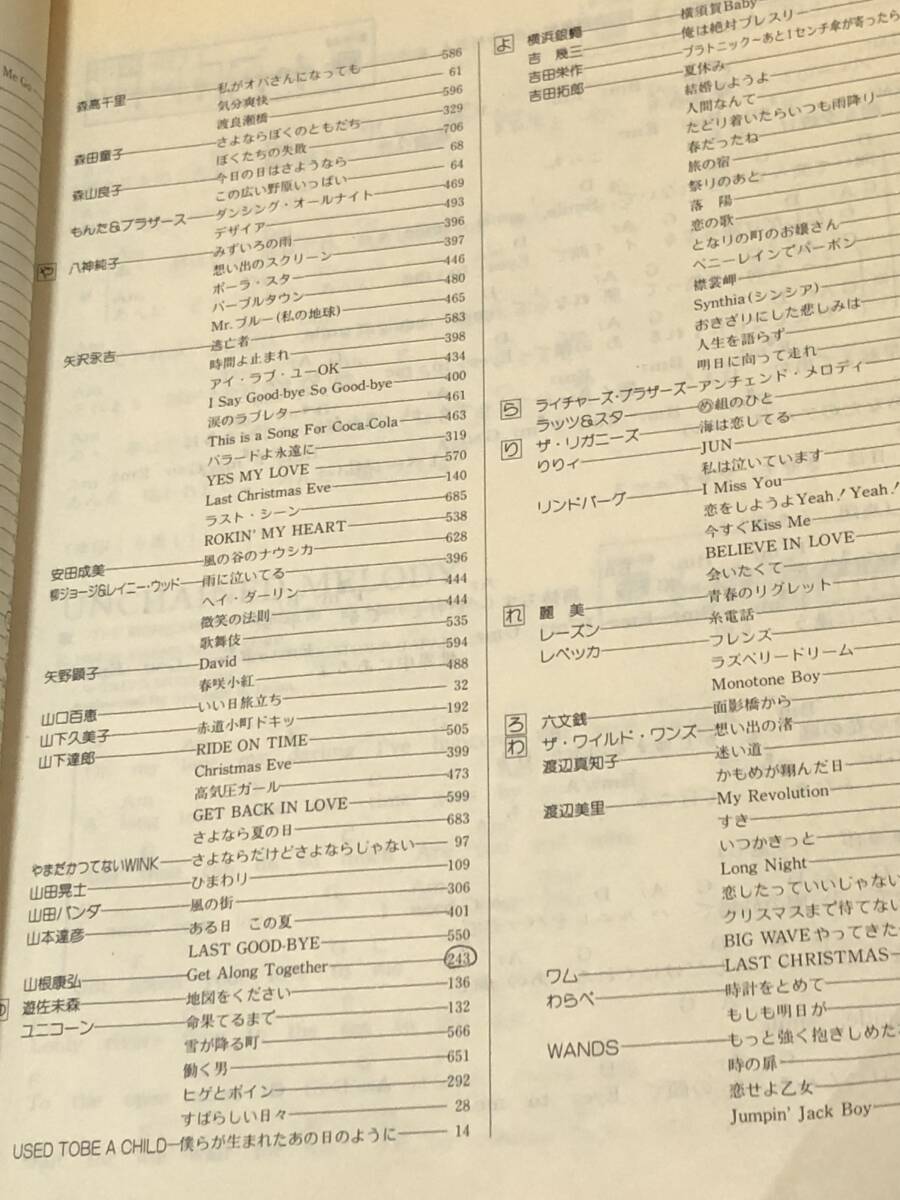 Me Go
森高千里―私がオバさんになっても―586
気分爽快―61
渡良瀬橋―596
森田童子―さよならぼくのともだち―329
ぼくたちの失敗―706
森山良子―今日の日はさようなら―68
この広い野原いっぱい―64
もんた&ブラザース―ダンシング・オールナイト―469
デザイア―493
や 八神純子―みずいろの雨―396
想い出のスクリーン―397
ポーラ・スター―446
パープルタウン―480
Mr.ブルー(私の地球)―465
矢沢永吉―逃亡者―583
時間よ止まれ―398
アイ・ラブ・ユーOK―434
I Say Good-bye So Good-bye―400
涙のラブレター―461
This is a Song For Coca-Cola―463
バラードよ永遠に―319
YES MY LOVE―570
Last Christmas Eve―140
ラスト・シーン―685
ROKIN' MY HEART―538
安田成美―風の谷のナウシカ―628
柳ジョージ&レイニー・ウッド―雨に泣いてる―396
ヘイ・ダーリン―444
微笑の法則―444
歌舞伎―535
矢野顕子―David―594
春咲小紅―488
山口百恵―いい日旅立ち―32
山下久美子―赤道小町ドキッ―192
山下達郎―RIDE ON TIME―505
Christmas Eve―399
高気圧ガール―473
GET BACK IN LOVE―599
さよなら夏の日―683
やまだかつてないWINK―さよならだけどさよならじゃない―97
山田晃士―ひまわり―109
山田パンダ―風の街―306
山本達彦―ある日 この夏―401
LAST GOOD-BYE―550
山根康弘―Get Along Together―243
ゆ 遊佐未森―地図をください―136
ユニコーン―命果てるまで―132
雪が降る町―566
働く男―651
ヒゲとボイン―292
すばらしい日々―28
USED TOBE A CHILD―僕らが生まれたあの日のように―14
よ 横浜銀蝿―横須賀Baby
吉 幾三―俺は絶対プレスリー
吉田栄作―プラトニック~あと1センチ傘が寄ったら
吉田拓郎―夏休み
結婚しようよ
人間なんて
たどり着いたらいつも雨降り
春だったね
旅の宿
祭りのあと
落 陽
恋の歌
となりの町のお嬢さん
ペニーレインでバーボン
襟裳岬
Synthia(シンシア)
おきざりにした悲しみは
人生を語らず
明日に向って走れ
ら ライチャーズ・ブラザーズ―アンチェンド・メロディー
ラッツ&スター―め組のひと
り ザ・リガニーズ―海は恋してる
りりィ―JUN
私は泣いています
リンドバーグ―I Miss You
恋をしようよYeah!Yeah!
今すぐKiss Me
BELIEVE IN LOVE
会いたくて
れ 麗 美―青春のリグレット
レーズン―糸電話
レベッカ―フレンズ
ラズベリードリーム
Monotone Boy
ろ 六文銭―面影橋から
わ ザ・ワイルド・ワンズ―想い出の渚
渡辺真知子―迷い道
かもめが翔んだ日
渡辺美里―My Revolution
すき
いつかきっと
Long Night
恋したっていいじゃない
クリスマスまで待てない
BIG WAVEやってきた
ワム―LAST CHRISTMAS
わらべ―時計をとめて
もしも明日が
WANDS―もっと強く抱きしめた
時の扉
恋せよ乙女
Jumpin' Jack Boy